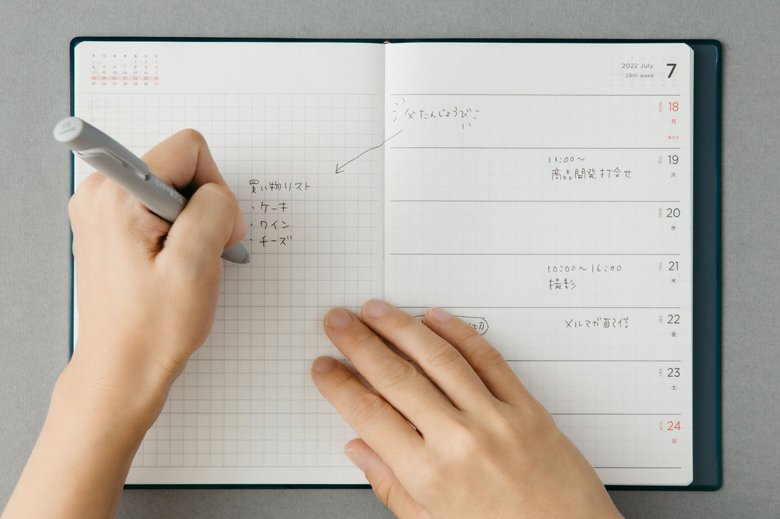 買い物リスト
・ケーキ
・ワイン
・チーズ
2022 July
29th week
7
父 たんじょうび
18
月
11:00〜
商品開発打合せ
19
火
20
水
10:00〜16:00
撮影
21
木
メルマガ配信
22
金
23
土
24
日